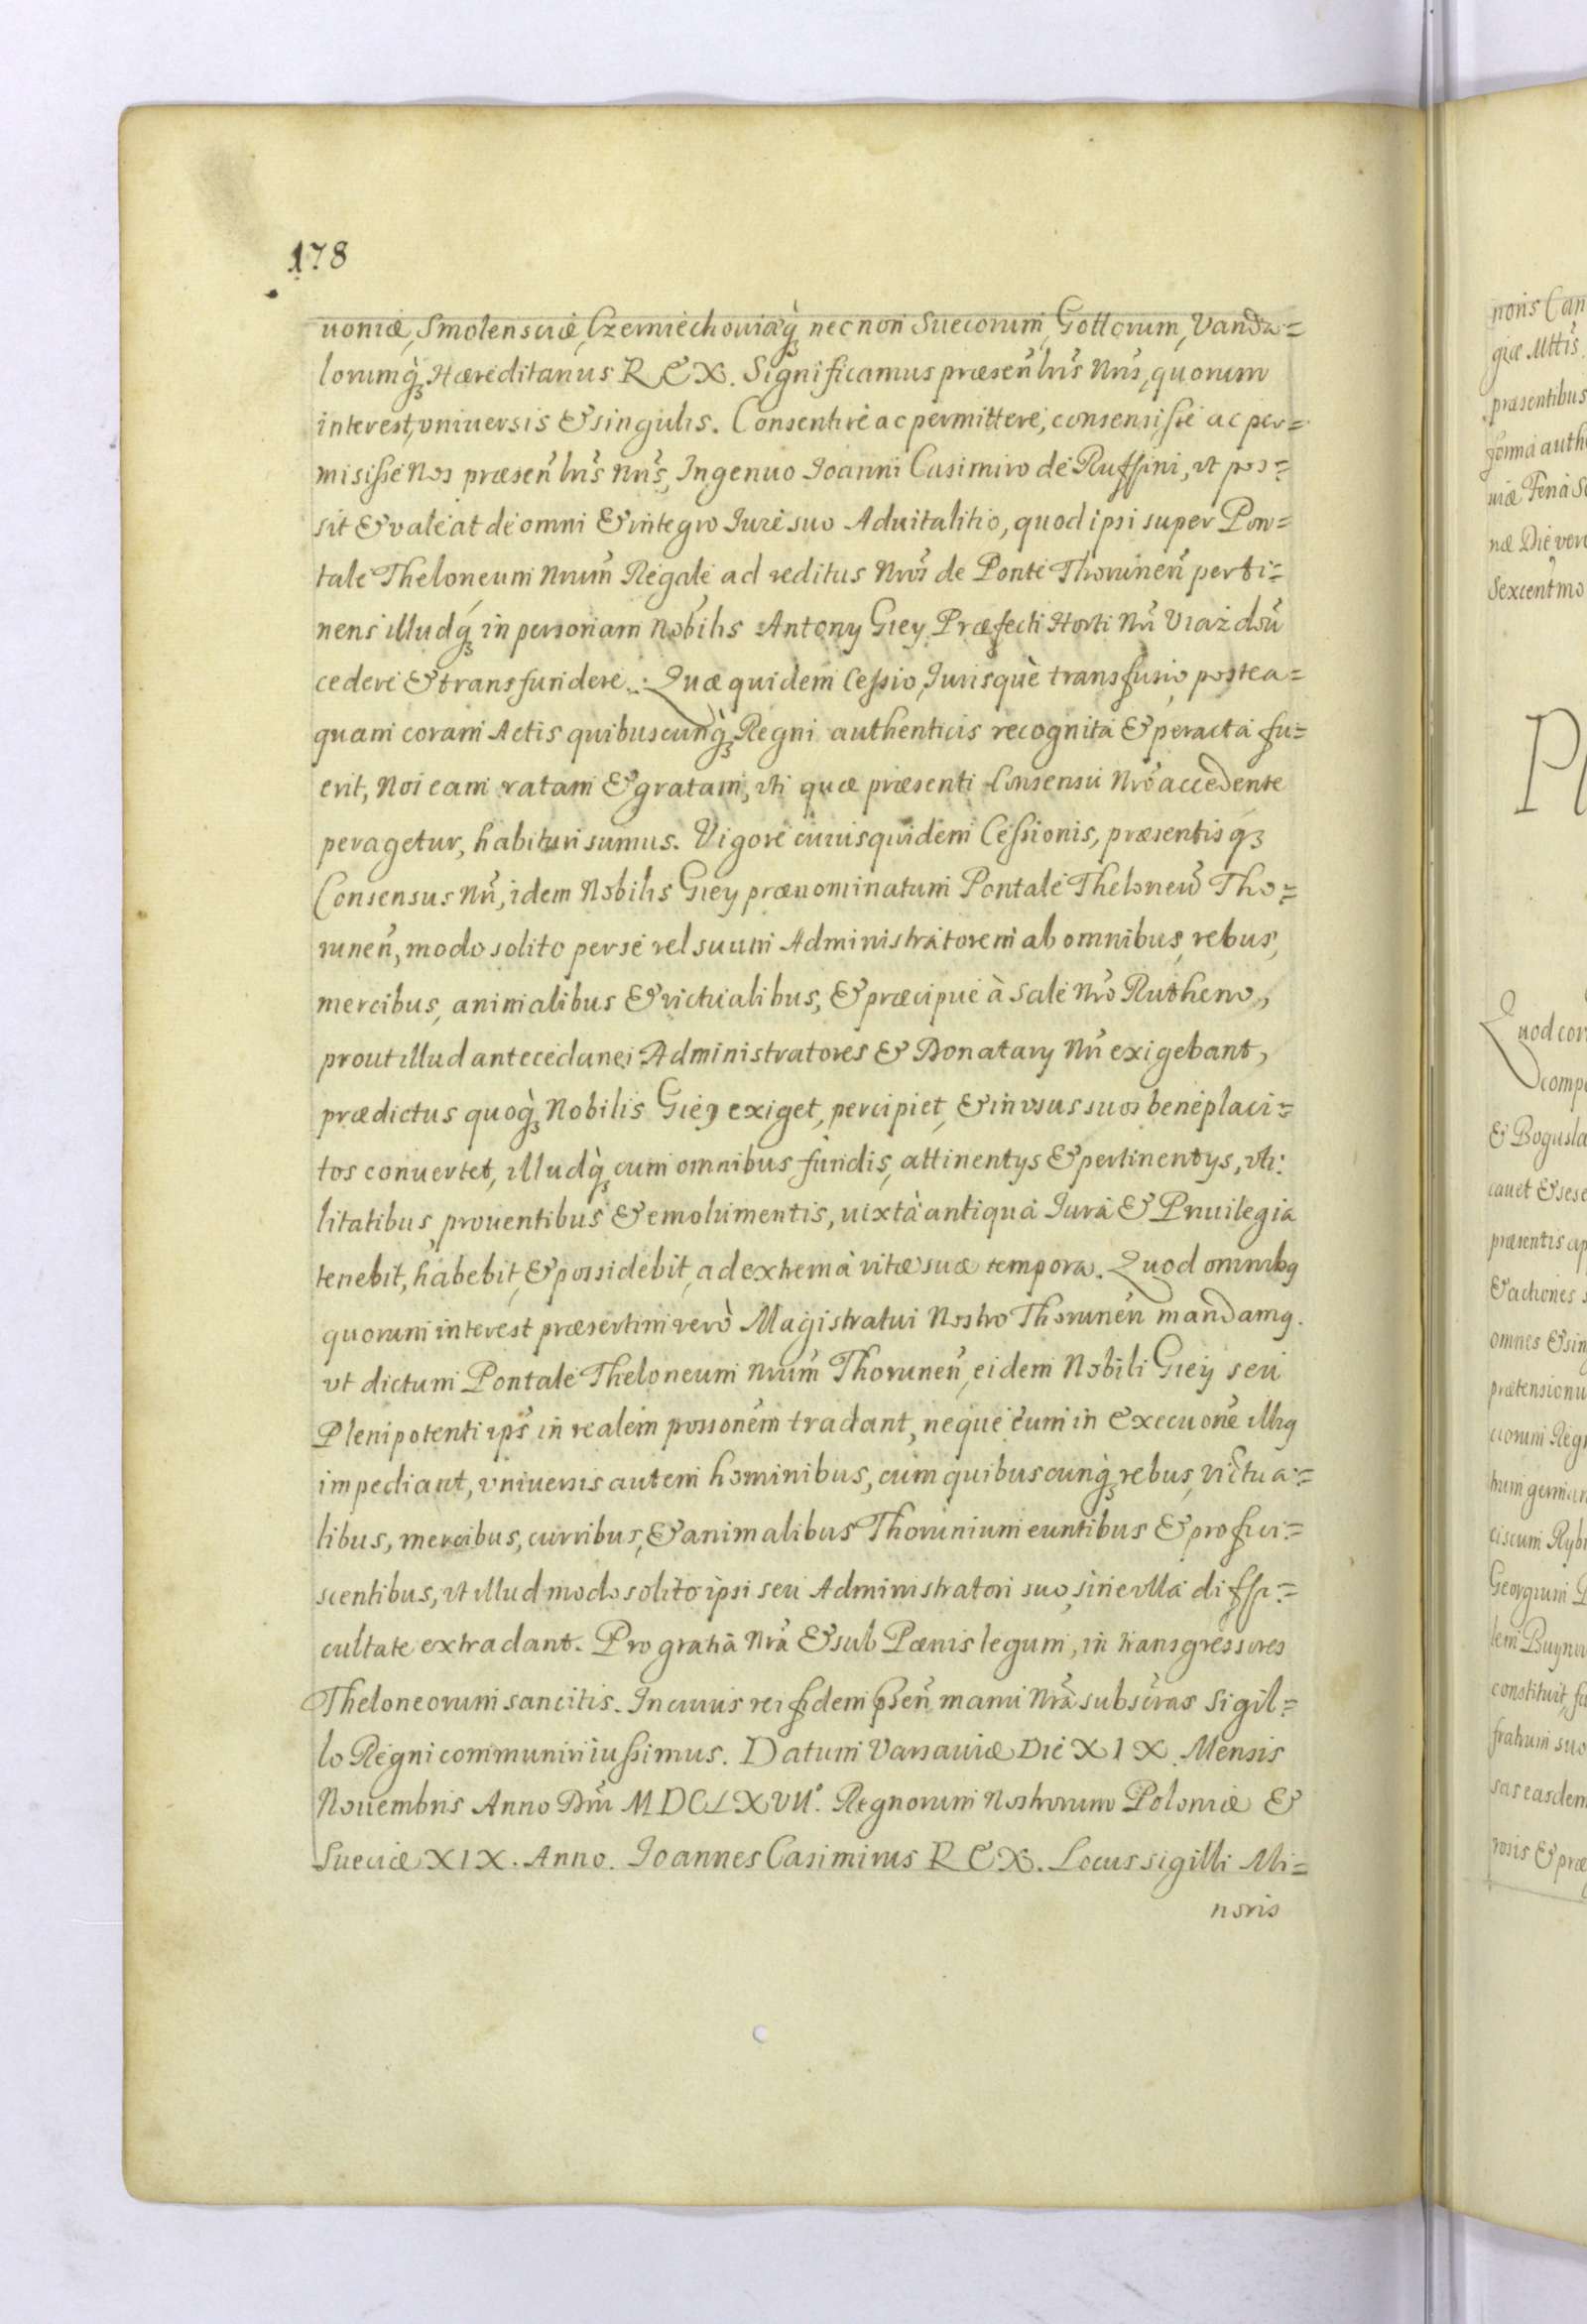 178
uoniæ, Smolensciæ, Czerniechouiæq́ꝫ necnon Suecorum, Gottorum, Vanda=
lorumq́ꝫ Hæreditarius REX. Significamus præsen̄ lrĩs Nrĩs, quorum
interest, vniuersis & singulis. Consentire ac permittere, consensiſse ac per=
misiſse Nos præsen̄ lrĩs nrĩs, Ingenuo Ioanni Casimiro de Ruffini, vt pos=
sit & valeat de omni & integro Iure suo Aduitalitio, quod ipsi super Pon=
tale Theloneum Nrum̃ Regale ad reditus Nros̃ de Ponte Thorunen̄ perti=
nens illudq́ꝫ in personam Nobilis Antony Giey Præfecti Horti Nrĩ Viazdoũ
cedere & transfundere. Quæ quidem Ceſsio, Iurisquè transfusio postea=
quam coram Actis quibuscunq́ꝫ Regni authenticis recognita & peracta fu=
erit, Nos eam ratam & gratam, vti quæ præsenti Consensu Nrõ accedente
peragetur, habituri sumus. Vigore cuiusquidem Ceſsionis, præsentisqꝫ
Consensus Nrĩ, idem Nobilis Giey prænominatum Pontale Theloneũ Tho=
runen̄, modo solito per se vel suum Administratorem ab omnibus, rebus,
mercibus, animalibus & victualibus, & præcipue à Sale Nrõ Rutheno,
prout illud antecedanei Administratores & Donatary Nrĩ exigebant,
prædictus quoq́ꝫ Nobilis Giey exiget, percipiet, & in vsus suos beneplaci=
tos conuertet, illudq́ꝫ cum omnibus fundis, attinentys & pertinentys, vti:
litatibus, prouentibus & emolumentis, iuxtà antiqua Iura & Priuilegia
tenebit, habebit, & possidebit, ad extrema vitæ suæ tempora. Quod omnibꝯ
quorum interest præsertim verò Magistratui Nostro Thorunen̄ mandamꝯ.
vt dictum Pontale Theloneum Nrum̃ Thorunen̄, eidem Nobili Giey seu
Plenipotenti ips̃ in realem possonem̃ tradant, neque eum in execuonē illiꝯ
impediant, vniuersis autem hominibus, cum quibuscunq́ꝫ rebus, victua=
libus, mercibus, curribus, & animalibus Thorunium euntibus & profici=
scentibus, vt illud modo solito ipsi seu Administratori suo, sine vlla diffi=
cultate extradant. Pro gratiã Nrã & sub Pœnis legum, in transgressores
Theloneorum sancitis. In cuius rei fidem pr̃sen̄ manu Nrã subscr̃as Sigil=
lo Regni communiri iuſsimus. Datum Varsauiæ Die XIX Mensis
Nouembris Anno Dnĩ MDCLXVII°. Regnorum Nostrorum Poloniæ &
Sueciæ XIX. Anno. Ioannes Casimirus REX. Locus sigilli Mi=
noris